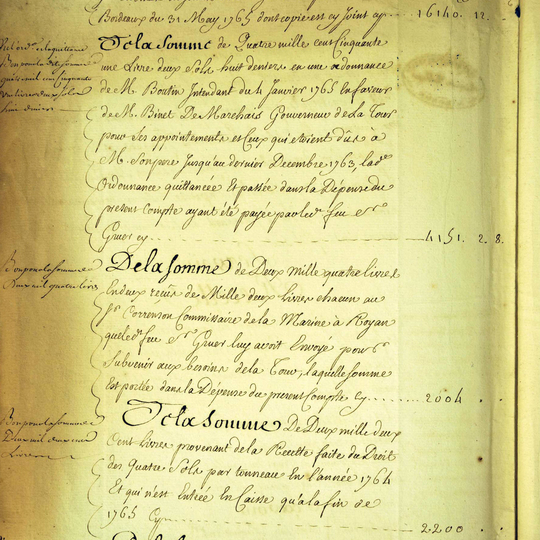 Bordeaux du 31 May 1765 dont copie est cy Joint cy 16140. 12.
De la somme de Quatre mille cent Cinquante
une Livre deux Sols huit deniers en une ordonnance
de M. Boutin Intendant du 4 Janvier 1765 En faveur
de M. Binet De Marchais Gouverneur de la Tour
pour Ses appointements et Ceux qui etoient dûs à
M. Son pere Jusqu'au dernier Decembre 1763, lad.e
Ordonnance quittancée Et passée dans la Dépense du
present Compte ayant été payée par led. feu Sr.
Gruer cy 4151. 2. 8.
Bon pour la somme de
Deux mil quatre livres
De la somme de Deux mille quatre Livres
En deux reçus de Mille deux Livres chacun du
Sr. Commissaire de la Marine à Royan
que led. feu Sr. Gruer luy avoit Envoyé pour
Subvenir aux besoins de la Tour, laquelle somme
Est portée dans la Dépense du present Compte Cy 2004
Bon pour la somme de
Deux mil deux cent
Livres
De la somme De Deux mille deux
Cent Livres provenant de la Recette faite du Droit
des Quatre Sols par tonneau En l'année 1764
Et qui n'est Entrée En Caisse qu'à la fin de
1765 Cy 2200
De la